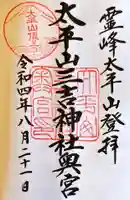 霊峰太平山登拝
太平山三吉神社奥宮
令和四年八月二十一日